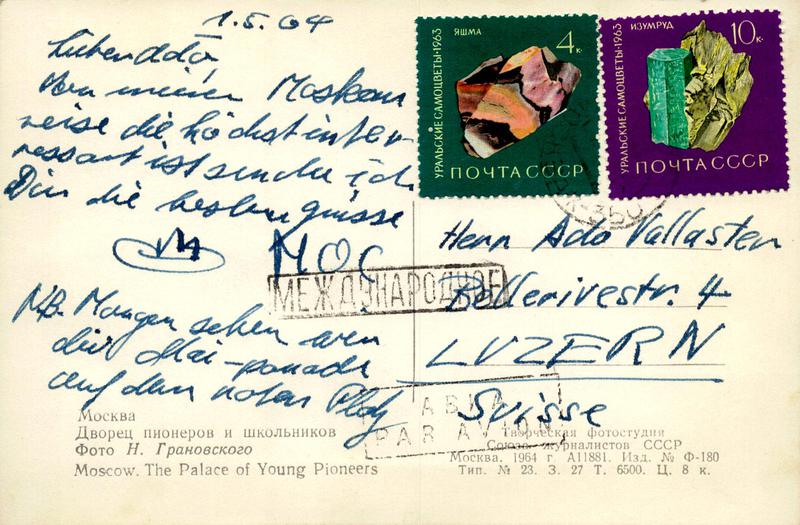 1.5.64
Lieber Ado,
Von meiner Moskau
reise die höchst inte-
ressant ist sende ich
Dir die besten grüsse
NB. Morgen sehen wir
die Mai-parade
auf dem roten Platz
Москва
Дворец пионеров и школьников
Фото Н. Грановского
Moscow. The Palace of Young Pioneers
УРАЛЬСКИЕ САМОЦВЕТЫ·1963
ЯШМА
4 к.
ПОЧТА СССР
УРАЛЬСКИЕ САМОЦВЕТЫ·1963
ИЗУМРУД
10 к.
ПОЧТА СССР
МЕЖДУНАРОДНОЕ
Herrn Ado Vallaster
Bellerivestr. 4
LUZERN
Suisse
АВИА
PAR AVION
Творческая фотостудия
Союза журналистов СССР
Москва. 1964 г. А11881. Изд. № Ф-180
Тип. № 23. З. 27 Т. 6500. Ц. 8 к.